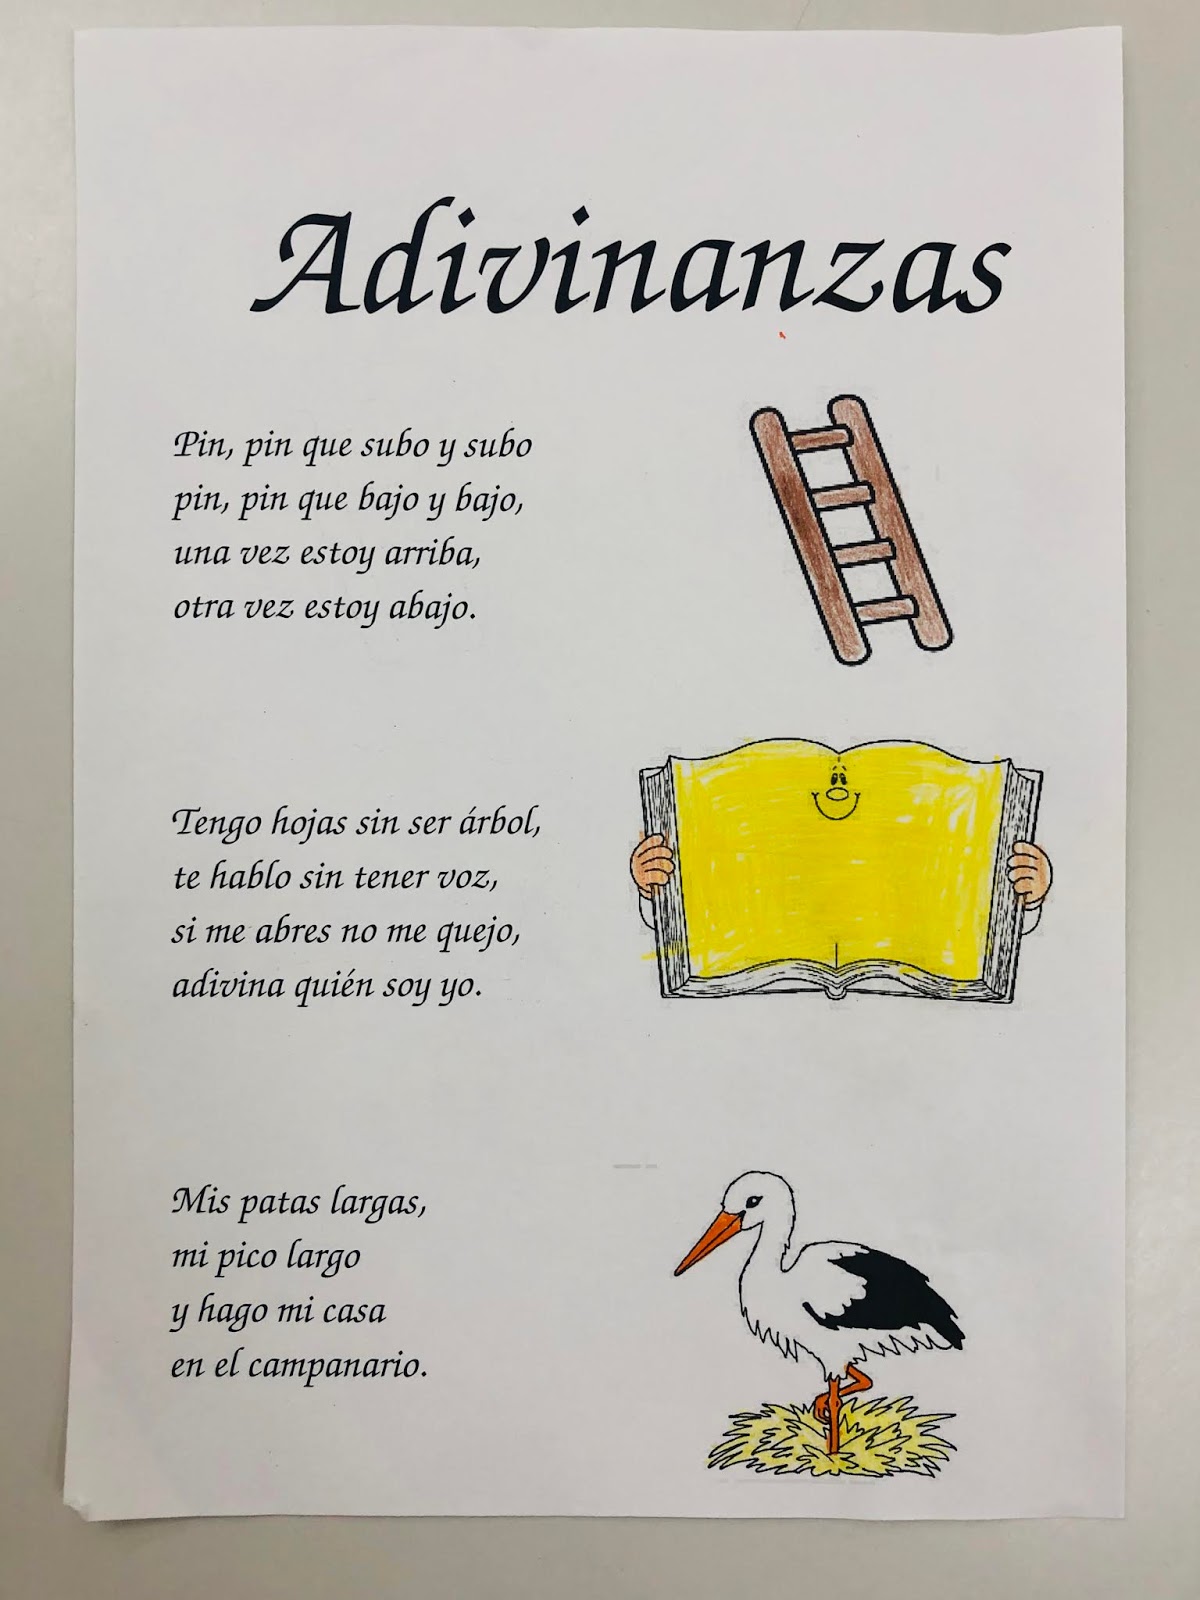 Adivinanzas
Pin, pin que subo y subo
pin, pin que bajo y bajo,
una vez estoy arriba,
otra vez estoy abajo.
Tengo hojas sin ser árbol,
te hablo sin tener voz,
si me abres no me quejo,
adivina quién soy yo.
Mis patas largas,
mi pico largo
y hago mi casa
en el campanario.